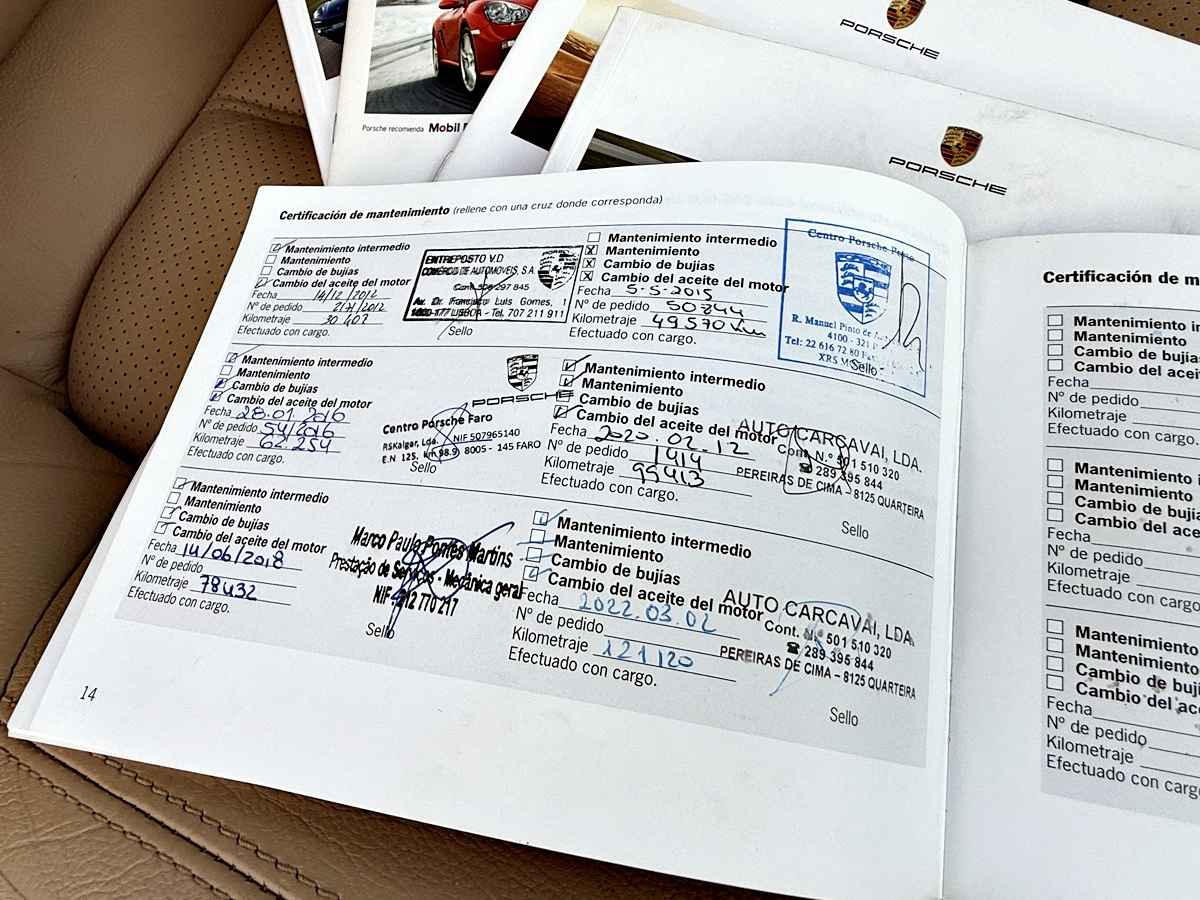 Porsche recomienda Mobil
PORSCHE
PORSCHE
Certificación de mantenimiento (rellene con una cruz donde corresponda)
Mantenimiento intermedio
Mantenimiento
Cambio de bujías
Cambio del aceite del motor
Fecha 14/12/2012
Nº de pedido 217/2012
Kilometraje 30 403
Efectuado con cargo.
ENTREPOSTO V.D
COMÉRCIO DE AUTOMÓVEIS, S.A.
Cont. 508 297 845
Av. Dr. Francisco Luis Gomes, 1
1800-177 LISBOA - Tel. 707 211 911
Sello
Mantenimiento intermedio
Mantenimiento
Cambio de bujías
Cambio del aceite del motor
Fecha 5-5-2015
Nº de pedido 50844
Kilometraje 49570 Km
Efectuado con cargo.
Centro Porsche Porto
R. Manuel Pinto de
4100 - 321
Tel: 22 616 72 80
XRS
Sello
Mantenimiento intermedio
Mantenimiento
Cambio de bujías
Cambio del aceite del motor
Fecha 28.01.2016
Nº de pedido 54/2016
Kilometraje 62.254
Efectuado con cargo.
PORSCHE
Centro Porsche Faro
RSKalgar, Lda. NIF 507965140
E.N 125, km 98.9 8005 - 145 FARO
Sello
Mantenimiento intermedio
Mantenimiento
Cambio de bujías
Cambio del aceite del motor
Fecha 2020.02.12
Nº de pedido 1914
Kilometraje 99413
Efectuado con cargo.
AUTO CARCAVAI, LDA.
Cont. N.º 501 510 320
☎ 289 395 844
PEREIRAS DE CIMA - 8125 QUARTEIRA
Sello
Mantenimiento intermedio
Mantenimiento
Cambio de bujías
Cambio del aceite del motor
Fecha 14/06/2018
Nº de pedido
Kilometraje 78432
Efectuado con cargo.
Marco Paulo Pontes Martins
Prestação de Serviços - Mecânica geral
NIF: 212 770 217
Sello
Mantenimiento intermedio
Mantenimiento
Cambio de bujías
Cambio del aceite del motor
Fecha 2022.03.02
Nº de pedido
Kilometraje 121120
Efectuado con cargo.
AUTO CARCAVAI, LDA
Cont. N.º 501 510 320
☎ 289 395 844
PEREIRAS DE CIMA - 8125 QUARTEIRA
Sello
14
Certificación de m
Mantenimiento in
Mantenimiento
Cambio de bujía
Cambio del aceit
Fecha
Nº de pedido
Kilometraje
Efectuado con cargo.
Mantenimiento i
Mantenimiento
Cambio de bujía
Cambio del ace
Fecha
Nº de pedido
Kilometraje
Efectuado con cargo
Mantenimiento
Mantenimiento
Cambio de buj
Cambio del ace
Fecha
Nº de pedido
Kilometraje
Efectuado con carg